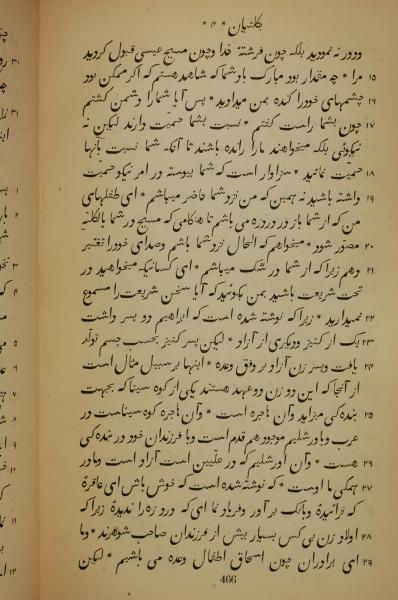 بکلتیان * ۴ *
ودور نه نمودید بلکه چون فرشتهٔ خدا وچون مسیح عیسی قبول کردید
۱۵ مرا * چه مقدار بود مبارک باد شما که شاهد هستم که اگر ممکن بود
۱۶ چشمهای خودرا کنده بمن میدادید * پس آیا شمارا دشمن گشتم
۱۷ چون بشما راست گفتم * نسبت بشما حمیّت دارند لیکن نه
نیکوئی بلکه میخواهند مارا رانده باشند تا آنکه شما نسبت بآنها
۱۸ حمیّت نمائید * سزاوار است که شما پیوسته در امر نیکو حمیت
۱۹ داشته باشید نه همین که من نزد شما حاضر میباشم * ای طفلهای
من که از شما باز در دردزه می باشم تا هنگامی که مسیح در شما بالکلیه
۲۰ مصوّر شود * میخواهم که الحال نزد شما باشم وصدای خودرا تغئیر
۲۱ دهم زیرا که از شما در شک میباشم * ای کسانیکه میخواهید در
تحت شریعت باشید بمن بگوئید که آیا سخن شریعت را مسموع
۲۲ نمیدارید * زیرا که نوشته شده است که ابراهیم دو پسر داشت
۲۳ یک از کنیز ودیگری از آزاد * لیکن پسر کنیز بحسب جسم تولّد
۲۴ یافت وپسر زن آزاد بر وفق وعده * اینها بر سبیل مثال است
از آنجا که این دو زن دو عهد هستند یکی از کوه سینا که بجهت
۲۵ بندهکی میزاید وآن هاجره است * وآن هاجره کوه سیناست در
عرب وباورشلیم موجود هم قدم است وبا فرزندان خود در بندهکی
۲۶ هست * وآن اورشلیم که در علّیین است آزاد است ومادر
۲۷ همکی ما اوست * که نوشته شده است که خوش باش ای عاقرهٔ
که نزائیدهٔ وبانک بر آور وفریاد نما ای که درد زه را ندیدهٔ زیرا که
۲۸ اولاد زن بی کس بسیار بیش از فرزندان صاحب شوهرند * وما
۲۹ ای برادران چون اسحاق اطفال وعده می باشیم * لیکن
466